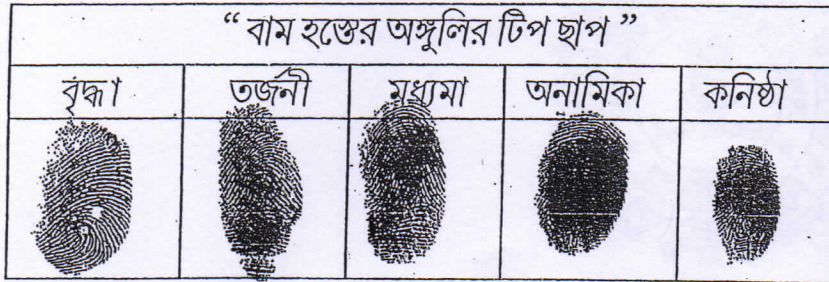 “ বাম হস্তের অঙ্গুলির টিপ ছাপ ”
বৃদ্ধা তর্জনী মধ্যমা অনামিকা কনিষ্ঠা